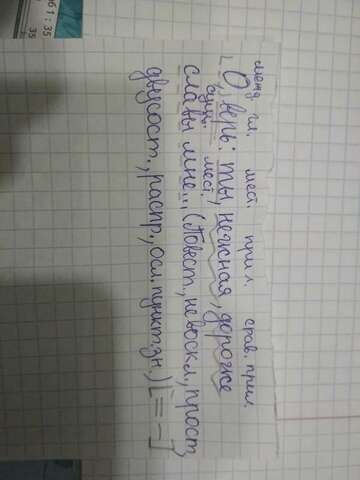 межд. гл. мест. прил. срав. прил.
[О, верь: ты, нежная, дороже
сущ. мест.
славы мне... (Повест., невоскл., прост,
двусост., распр., осл. пункт. зн.) [= –]
61:35
35